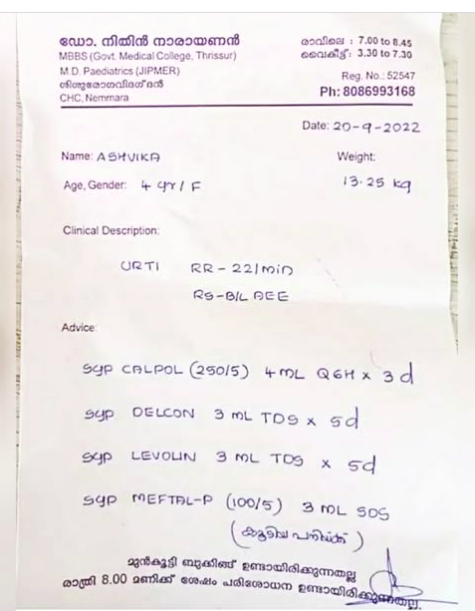 ഡോ. നിതിൻ നാരായണൻ
MBBS (Govt. Medical College, Thrissur)
M.D. Paediatrics (JIPMER)
ശിശുരോഗവിദഗ്ദൻ
CHC, Nemmara
രാവിലെ : 7.00 to 8.45
വൈകീട്ട്: 3.30 to 7.30
Reg. No.: 52547
Ph: 8086993168
Date: 20-9-2022
Name: ASHVIKA
Weight:
Age, Gender: 4 yr / F
13.25 kg
Clinical Description:
URTI RR - 22/min
RS - B/L AEE
Advice:
syp CALPOL (250/5) 4 mL Q6H x 3 d
syp DELCON 3 mL TDS x 5d
syp LEVOLIN 3 mL TDS x 5d
syp MEFTAL-P (100/5) 3 mL SOS
(കൂടിയ പനിക്ക്)
മുൻകൂട്ടി ബുക്കിങ്ങ് ഉണ്ടായിരിക്കുന്നതല്ല
രാത്രി 8.00 മണിക്ക് ശേഷം പരിശോധന ഉണ്ടായിരിക്കുന്നതല്ല